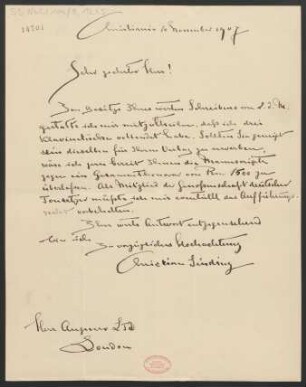 Christiania 10 November 1907
Sehr geehrter Herr!
Im Besitze Ihres werten Schreibens vom 8. d. M.
gestatte ich mir mitzuteilen, dass ich drei
Klavierstücke vollendet habe. Sollten Sie geneigt
sein dieselben für Ihren Verlag zu erwerben,
wäre ich gern bereit Ihnen die Manuscripte
gegen ein Gesamthonorar von Rm. 1500 zu
überlassen. Als Mitglied der Genossenschaft deutscher
Tonsetzer müsste ich mir eventuell das Aufführungs-
recht vorbehalten.
Ihrer werten Antwort entgegensehend
bin ich
In vorzüglicher Hochachtung
Christian Sinding
Herr Augener Ltd
London